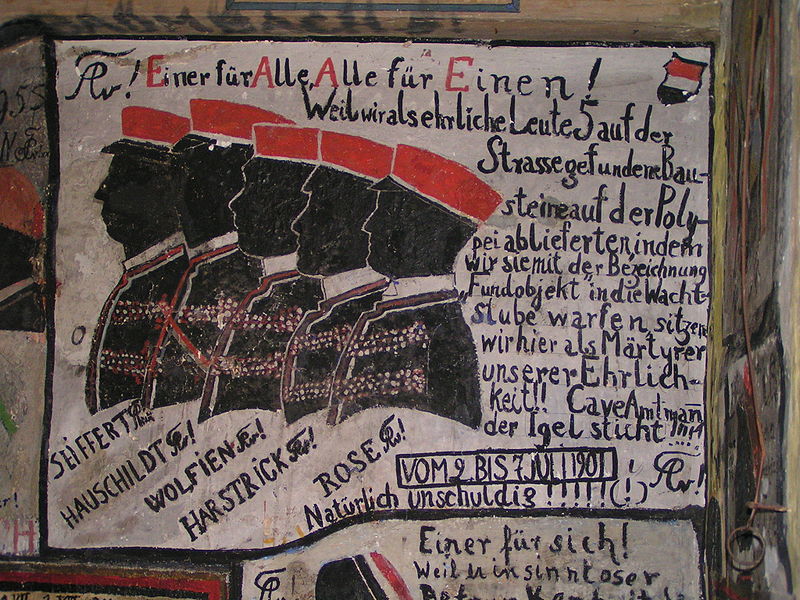 Einer für Alle, Alle für Einen!
Weil wir als ehrliche Leute 5 auf der
Strasse gefundene Bau-
steine auf der Poly-
pei ablieferten, indem
wir sie mit der Bezeichnung
„Fundobjekt" in die Wacht-
stube warfen, sitzen
wir hier als Märtyrer
unserer Ehrlich-
keit!! Cave Amtmann
der Igel sticht
SEIFFERT
HAUSCHILDT !
WOLFIEN !
HARSTRICK !
ROSE !
VOM 2. BIS 7. JULI 1901
Natürlich unschuldig !!!!!(!)
Einer für sich!
Weil er in sinnloser